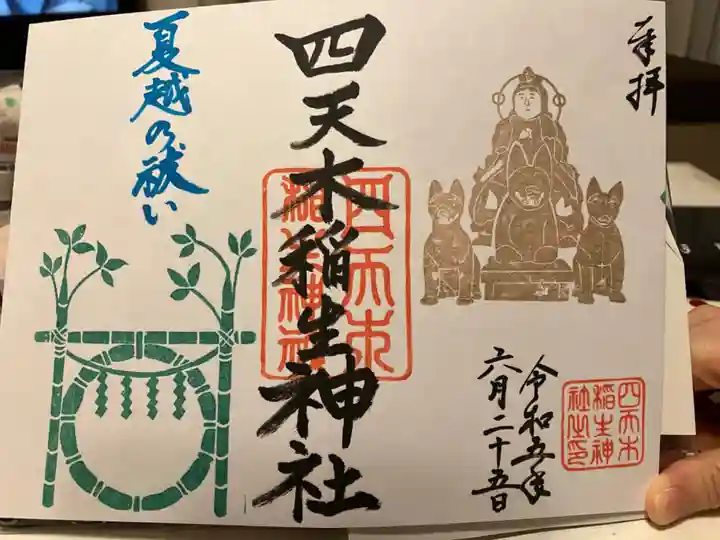 奉拝
令和五年
六月二十五日
四天木稲生神社
夏越の祓い
四天木
稲生神
社之印
四天木
稲生神社